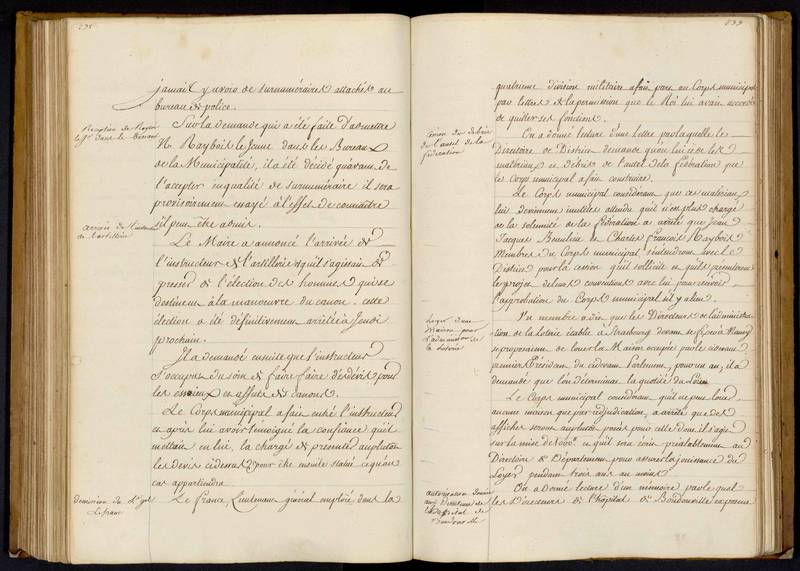 jamais y avoir de surnuméraires attachés au
bureau de police.
Sur la demande qui a été faite d'admettre
M. Mayboit le Jeune dans les Bureaux
de la Municipalité, il a été décidé qu'avant de
l'accepter en qualité de surnuméraire il sera
provisoirement essayé à l'effet de connaître
s'il peut être admis.
arrivée de l'instructeur
de l'artillerie
Le Maire a annoncé l'arrivée de
l'instructeur de l'artillerie et qu'il s'agissait de
presser de l'élection des hommes qui se
destinent à la manoeuvre du canon. cette
élection a été définitivement arrêtée à Jeudi
prochain.
Il a demandé ensuite que l'instructeur
s'occupat du soin de faire faire des dévis pour
les essieux et affuts de canons.
Le Corps municipal a fait entrer l'instructeur
et après lui avoir témoigné la confiance qu'il
mettait en lui, l'a chargé de présenter auplutot
les devis cidessus pour être ensuite statué ce qu'au
cas appartiendra.
demission du Lt. gal
Lefranc
Le franc, Lieutenant général employé dans la
833
quatrieme division militaire a fait part au Corps municipal
par lettres de la permission que le Roi lui avait accordée
de quitter ses fonctions.
Cession des débris
de l'autel de la
fédération
On a donné lecture d'une lettre par laquelle le
Directoire de District demande qu'on lui cede les
matériaux et débris de l'autel de la fédération que
le Corps municipal a fait construire.
Le Corps municipal considérant que ces matériaux
lui deviennent inutiles attendu qu'il n'est plus chargé
de la solemnité de la fédération a arrêté que Jean
Jacques Beaulieu et Charles François Mayboit
Membres du Corps municipal s'entendront avec le
District pour la cession qu'il sollicite et qu'ils présenteront
le projet de leurs conventions avec lui pour recevoir
l'approbation du Corps municipal s'il y a lieu.
Loyer d'une
Maison pour
l'administration de
la loterie
Un membre a dit que les Directeurs de l'administra
tion de la loterie établie à Strasbourg devant se fixer à Nancy
se proposaient de louer la Maison occupée par le cidevant
premier Président du cidevant Parlement, pour un an; il a
demandé que l'on déterminat la quotité du Loyer
Le Corps municipal considérant qu'il ne peut louer
aucune maison que par adjudication, a arrêté que des
affiches seront auplutot posées pour celle dont il s'agit
sur la mise de et qu'il sera écrit préalablement au
Directoire de Département pour assurer la jouissance du
Loyer pendant trois ans au moins.
l'hopital de
Boudonville
On a donné lecture d'un mémoire par lequel
les Directeurs de l'hôpital de Boudonville exposent